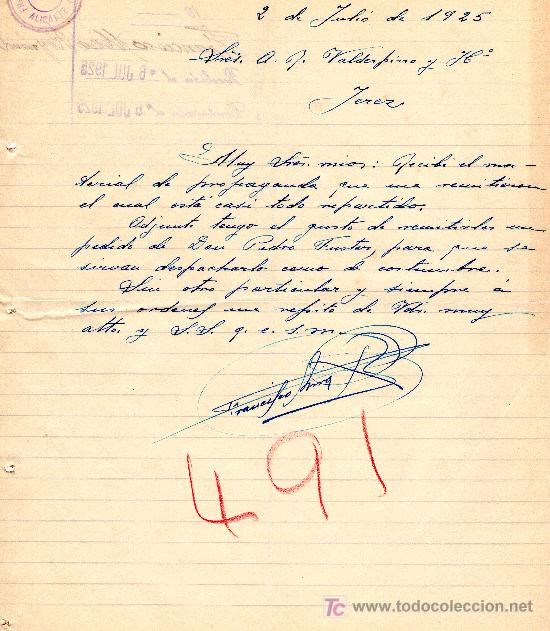 ALICANTE
2 de Julio de 1925
Sres. A. R. Valdespino y Hº
Jerez
Muy Sres. mios: Recibi el ma-
terial de propaganda que me remitieron
el cual está casi todo repartido.
Adjunto tengo el gusto de remitirles un
pedido de Don Pedro Fuster, para que se
sirvan despacharlo como de costumbre.
Sin otro particular y siempre á
sus ordenes me repito de Vds. muy
atto. y S.S. q. e. s. m.
Francisco
491
TC www.todocoleccion.net